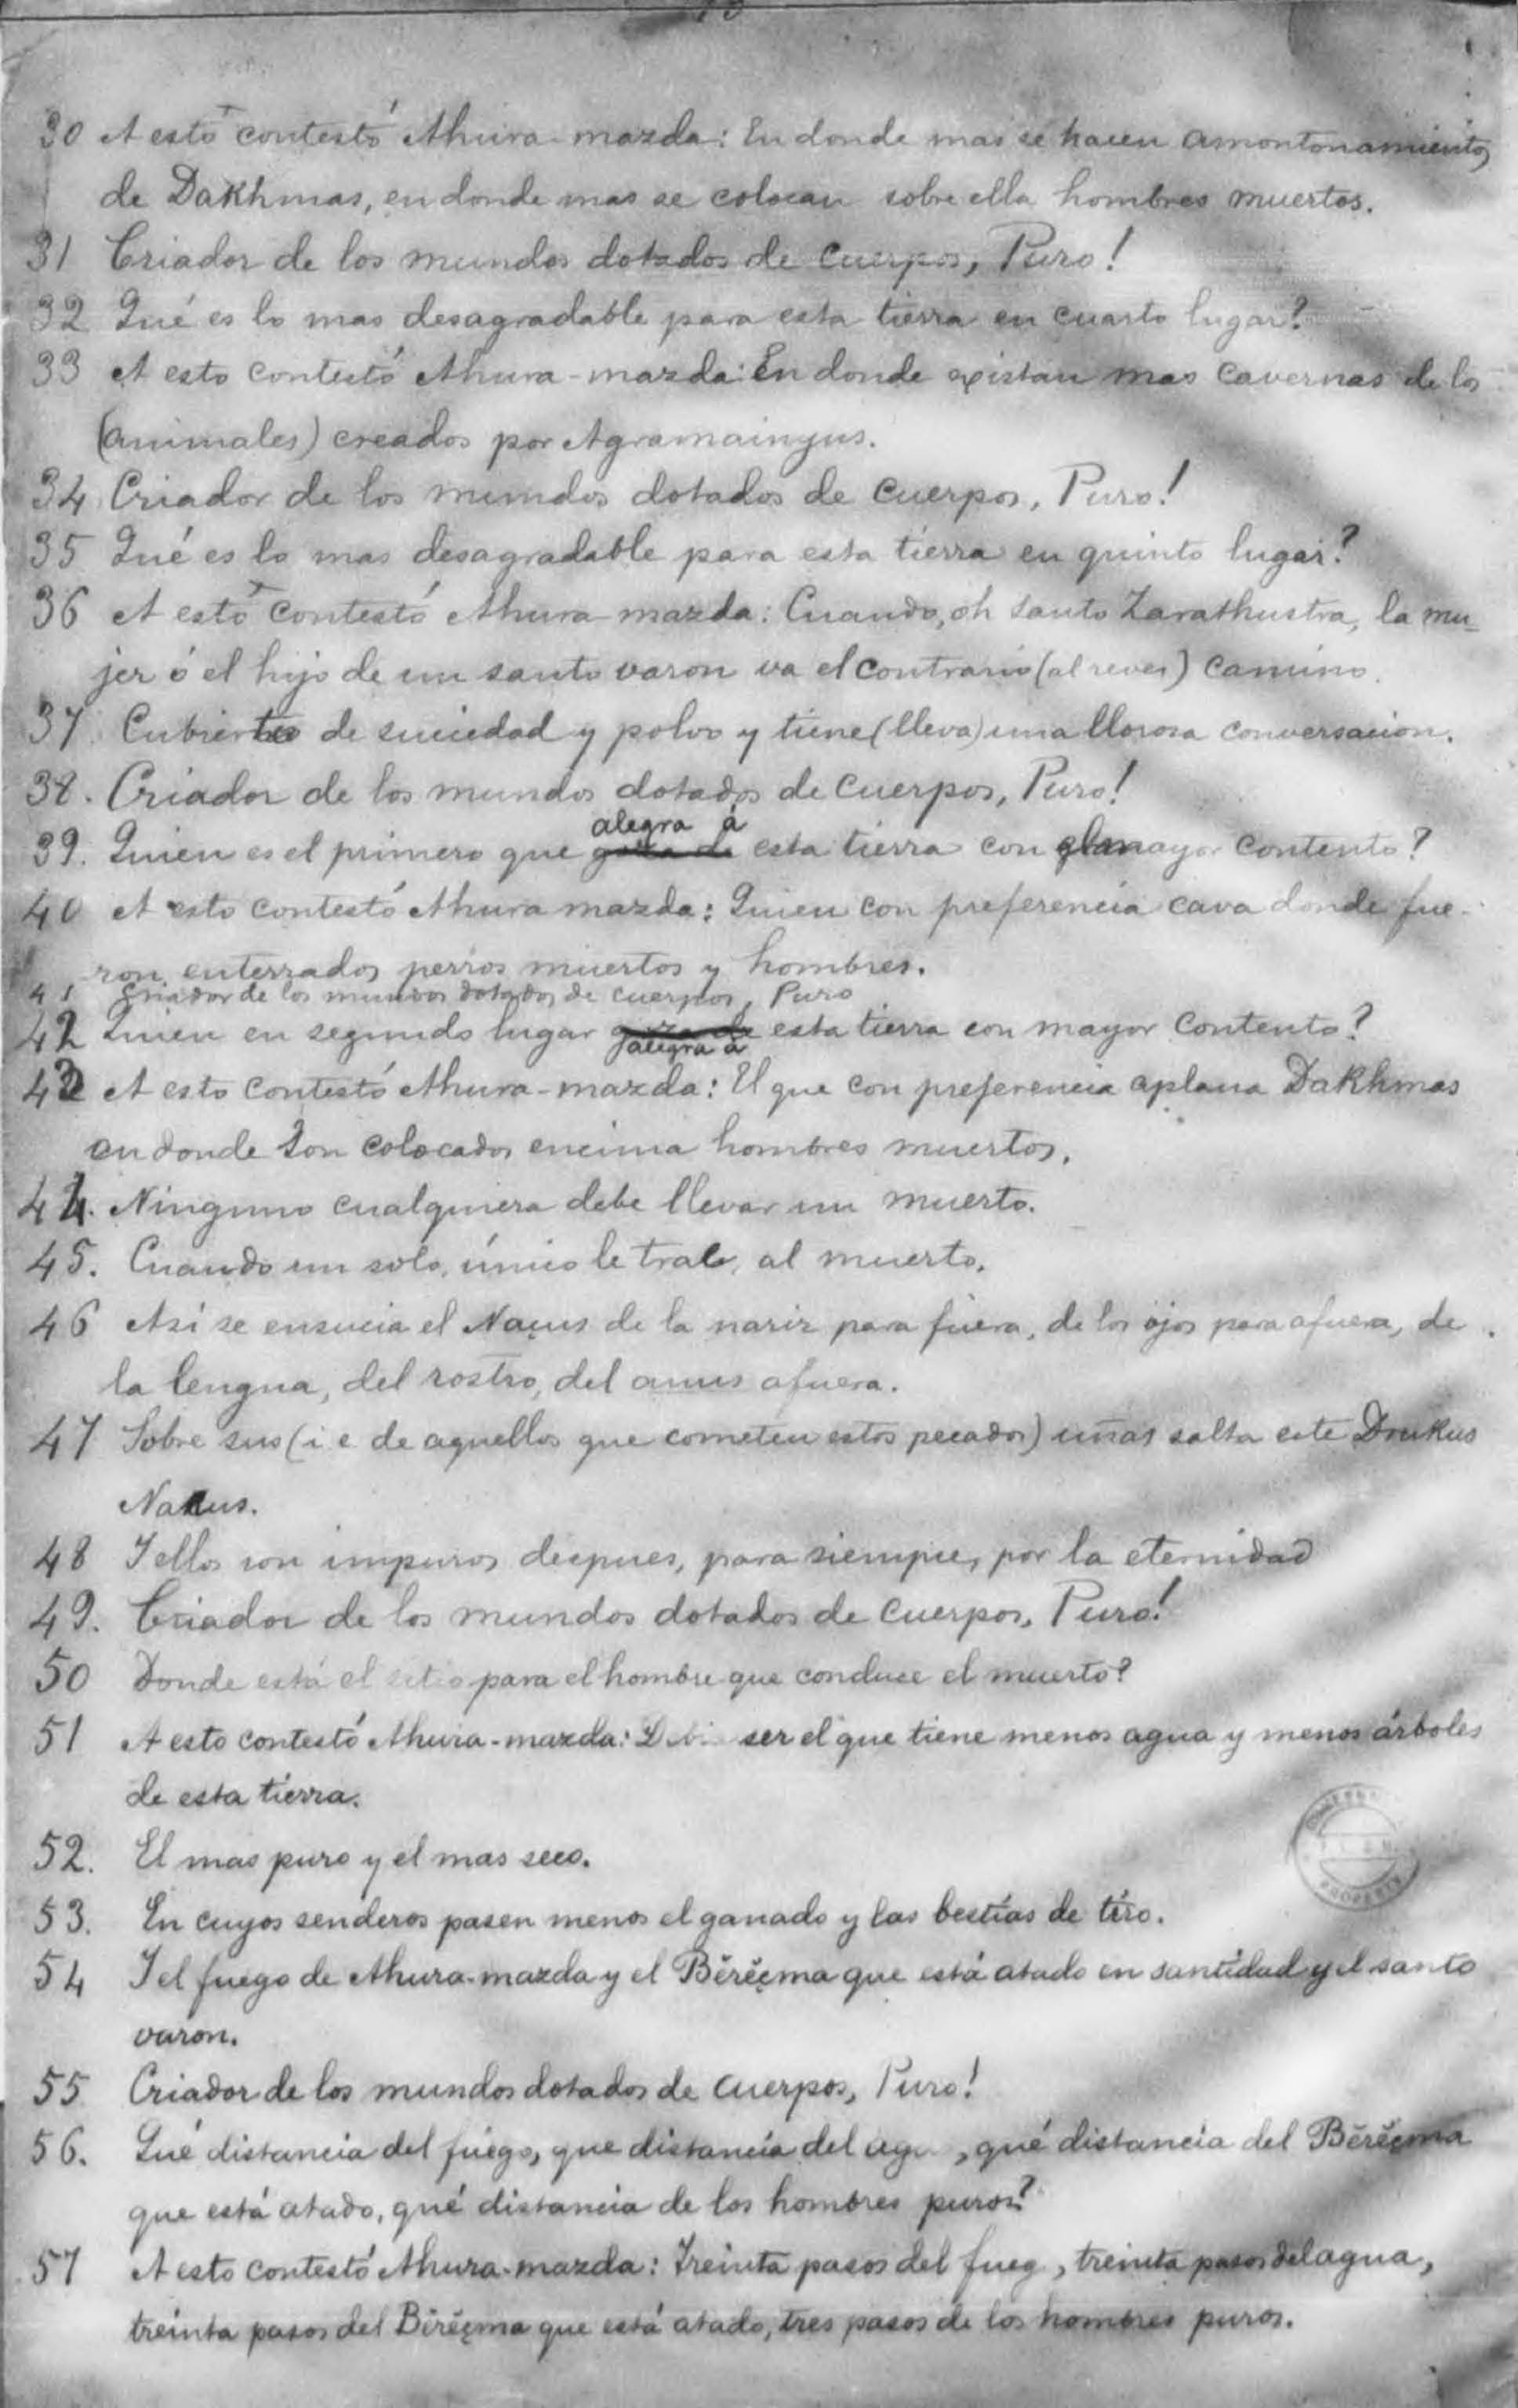 30 A esto contestó Ahura-mazda: En donde mas se hacen amontonamientos
de Dakhmas, en donde mas se colocan sobre ella hombres muertos.
31 Criador de los mundos dotados de cuerpos, Puro!
32 Qué es lo mas desagradable para esta tierra en cuarto lugar?
33 A esto contestó Ahura-mazda: En donde existan mas cavernas de los
(animales) creados por Agramainyus.
34 Criador de los mundos dotados de cuerpos, Puro!
35 Qué es lo mas desagradable para esta tierra en quinto lugar?
36 A esto contestó Ahura-mazda: Cuando, oh santo Zarathustra, la mu-
jer ó el hijo de un santo varon va el contrario (al reves) camino.
37 Cubierto de suciedad y polvo y tiene (lleva) una llorosa conversacion.
38. Criador de los mundos dotados de cuerpos, Puro!
alegra á
39. Quien es el primero que goza de esta tierra con mayor contento?
40 A esto contestó Ahura mazda: Quien con preferencia cava donde fue-
ron enterrados perros muertos y hombres.
41 Criador de los mundos dotados de cuerpos, Puro
42 Quien en segundo lugar goza de esta tierra con mayor contento?
alegra á
43 A esto contestó Ahura-mazda: El que con preferencia aplana Dakhmas
en donde son colocados encima hombres muertos.
44. Ninguno cualquiera debe llevar un muerto.
45. Cuando un solo, único le trae, al muerto.
46 Asi se ensucia el Naçus de la nariz para fuera, de los ojos para afuera, de
la lengua, del rostro, del anus afuera.
47 Sobre sus (i e de aquellos que cometen estos pecados) uñas salta este Drukus
Nakus.
48 I ellos son impuros despues, para siempre, por la eternidad
49. Criador de los mundos dotados de cuerpos, Puro!
50 Donde está el sitio para el hombre que conduce el muerto?
51 A esto contestó Ahura-mazda: ser el que tiene menos agua y menos árboles
de esta tierra.
52. El mas puro y el mas seco.
53. En cuyos senderos pasen menos el ganado y las bestias de tiro.
54 I el fuego de Ahura-mazda y el Bĕrĕçma que está atado en santidad y el santo
varon.
55 Criador de los mundos dotados de cuerpos, Puro!
56. Qué distancia del fuego, que distancia del agu , qué distancia del Bĕrĕçma
que está atado, qué distancia de los hombres puros?
57 A esto contestó Ahura-mazda: Treinta pasos del fueg , treinta pasos del agua,
treinta pasos del Bĕrĕçma que está atado, tres pasos de los hombres puros.
PROPERTY